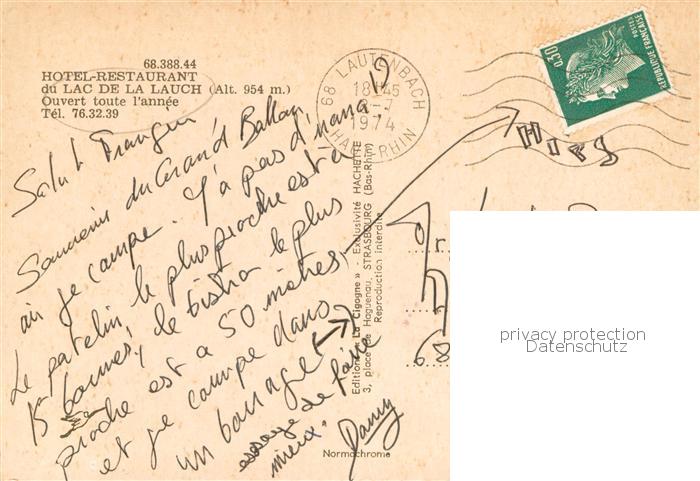 68.388.44
HOTEL-RESTAURANT
du LAC DE LA LAUCH (Alt. 954 m.)
Ouvert toute l'année
Tél. 76.32.39
68 LAUTENBACH
18H45
1974
HAUT-RHIN
0,30
POSTES
REPUBLIQUE FRANÇAISE
Salut
Souvenir du Grand Ballon
où je campe. Y'a pas d'nana,
Le patelin le plus proche est à
15 bornes, le bistro le plus
proche est à 50 mètres
et je campe dans
un barrage
essaye de faire
mieux
Danny
Editions « La Cigogne » - Exclusivité HACHETTE
3, place de Haguenau, STRASBOURG (Bas-Rhin)
Reproduction interdite
Normochrome
68
privacy protection
Datenschutz